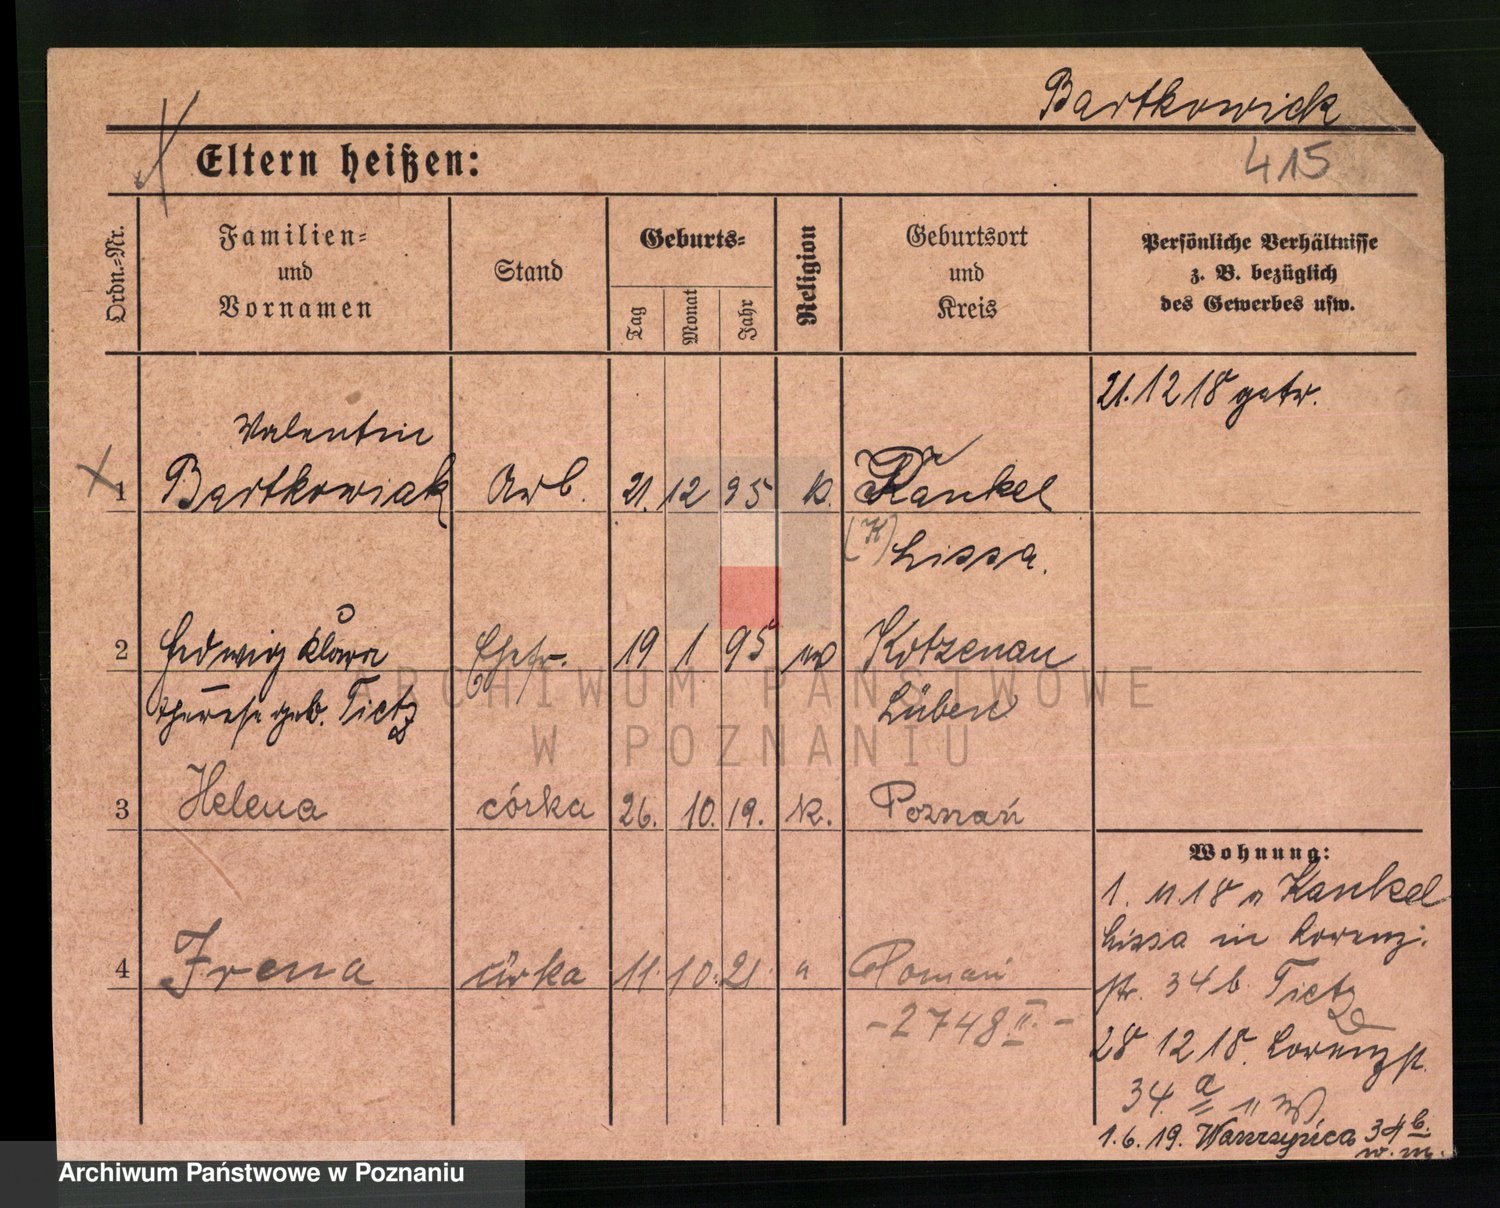 Bartkowiak
415
Eltern heißen:
Ordn.-Nr.
Familien-
und
Vornamen
Stand
Geburts-
Tag
Monat
Jahr
Religion
Geburtsort
und
Kreis
Persönliche Verhältnisse
z. B. bezüglich
des Gewerbes usw.
21.12 18 getr.
Valentin
1 Bartkowiak Arb. 21. 12 95 k. Kankel
(K) Lissa.
2 Hedwig Klara Ehefr. 19 1 95 ev Kotzenau
Therese geb. Tietz Lüben
3 Helena córka 26. 10. 19. k. Poznań
Wohnung:
1. 11. 18 v Kankel
Lissa in Lorenz-
str. 34 b Tietz
4 Irena córka 11 10. 21 " Poznań
- 2748 II. -
28 12 18. Lorenzstr.
34. a
1. 6. 19. Wawrzyńca 34 b.
w. m.
ARCHIWUM PAŃSTWOWE
W POZNANIU
Archiwum Państwowe w Poznaniu